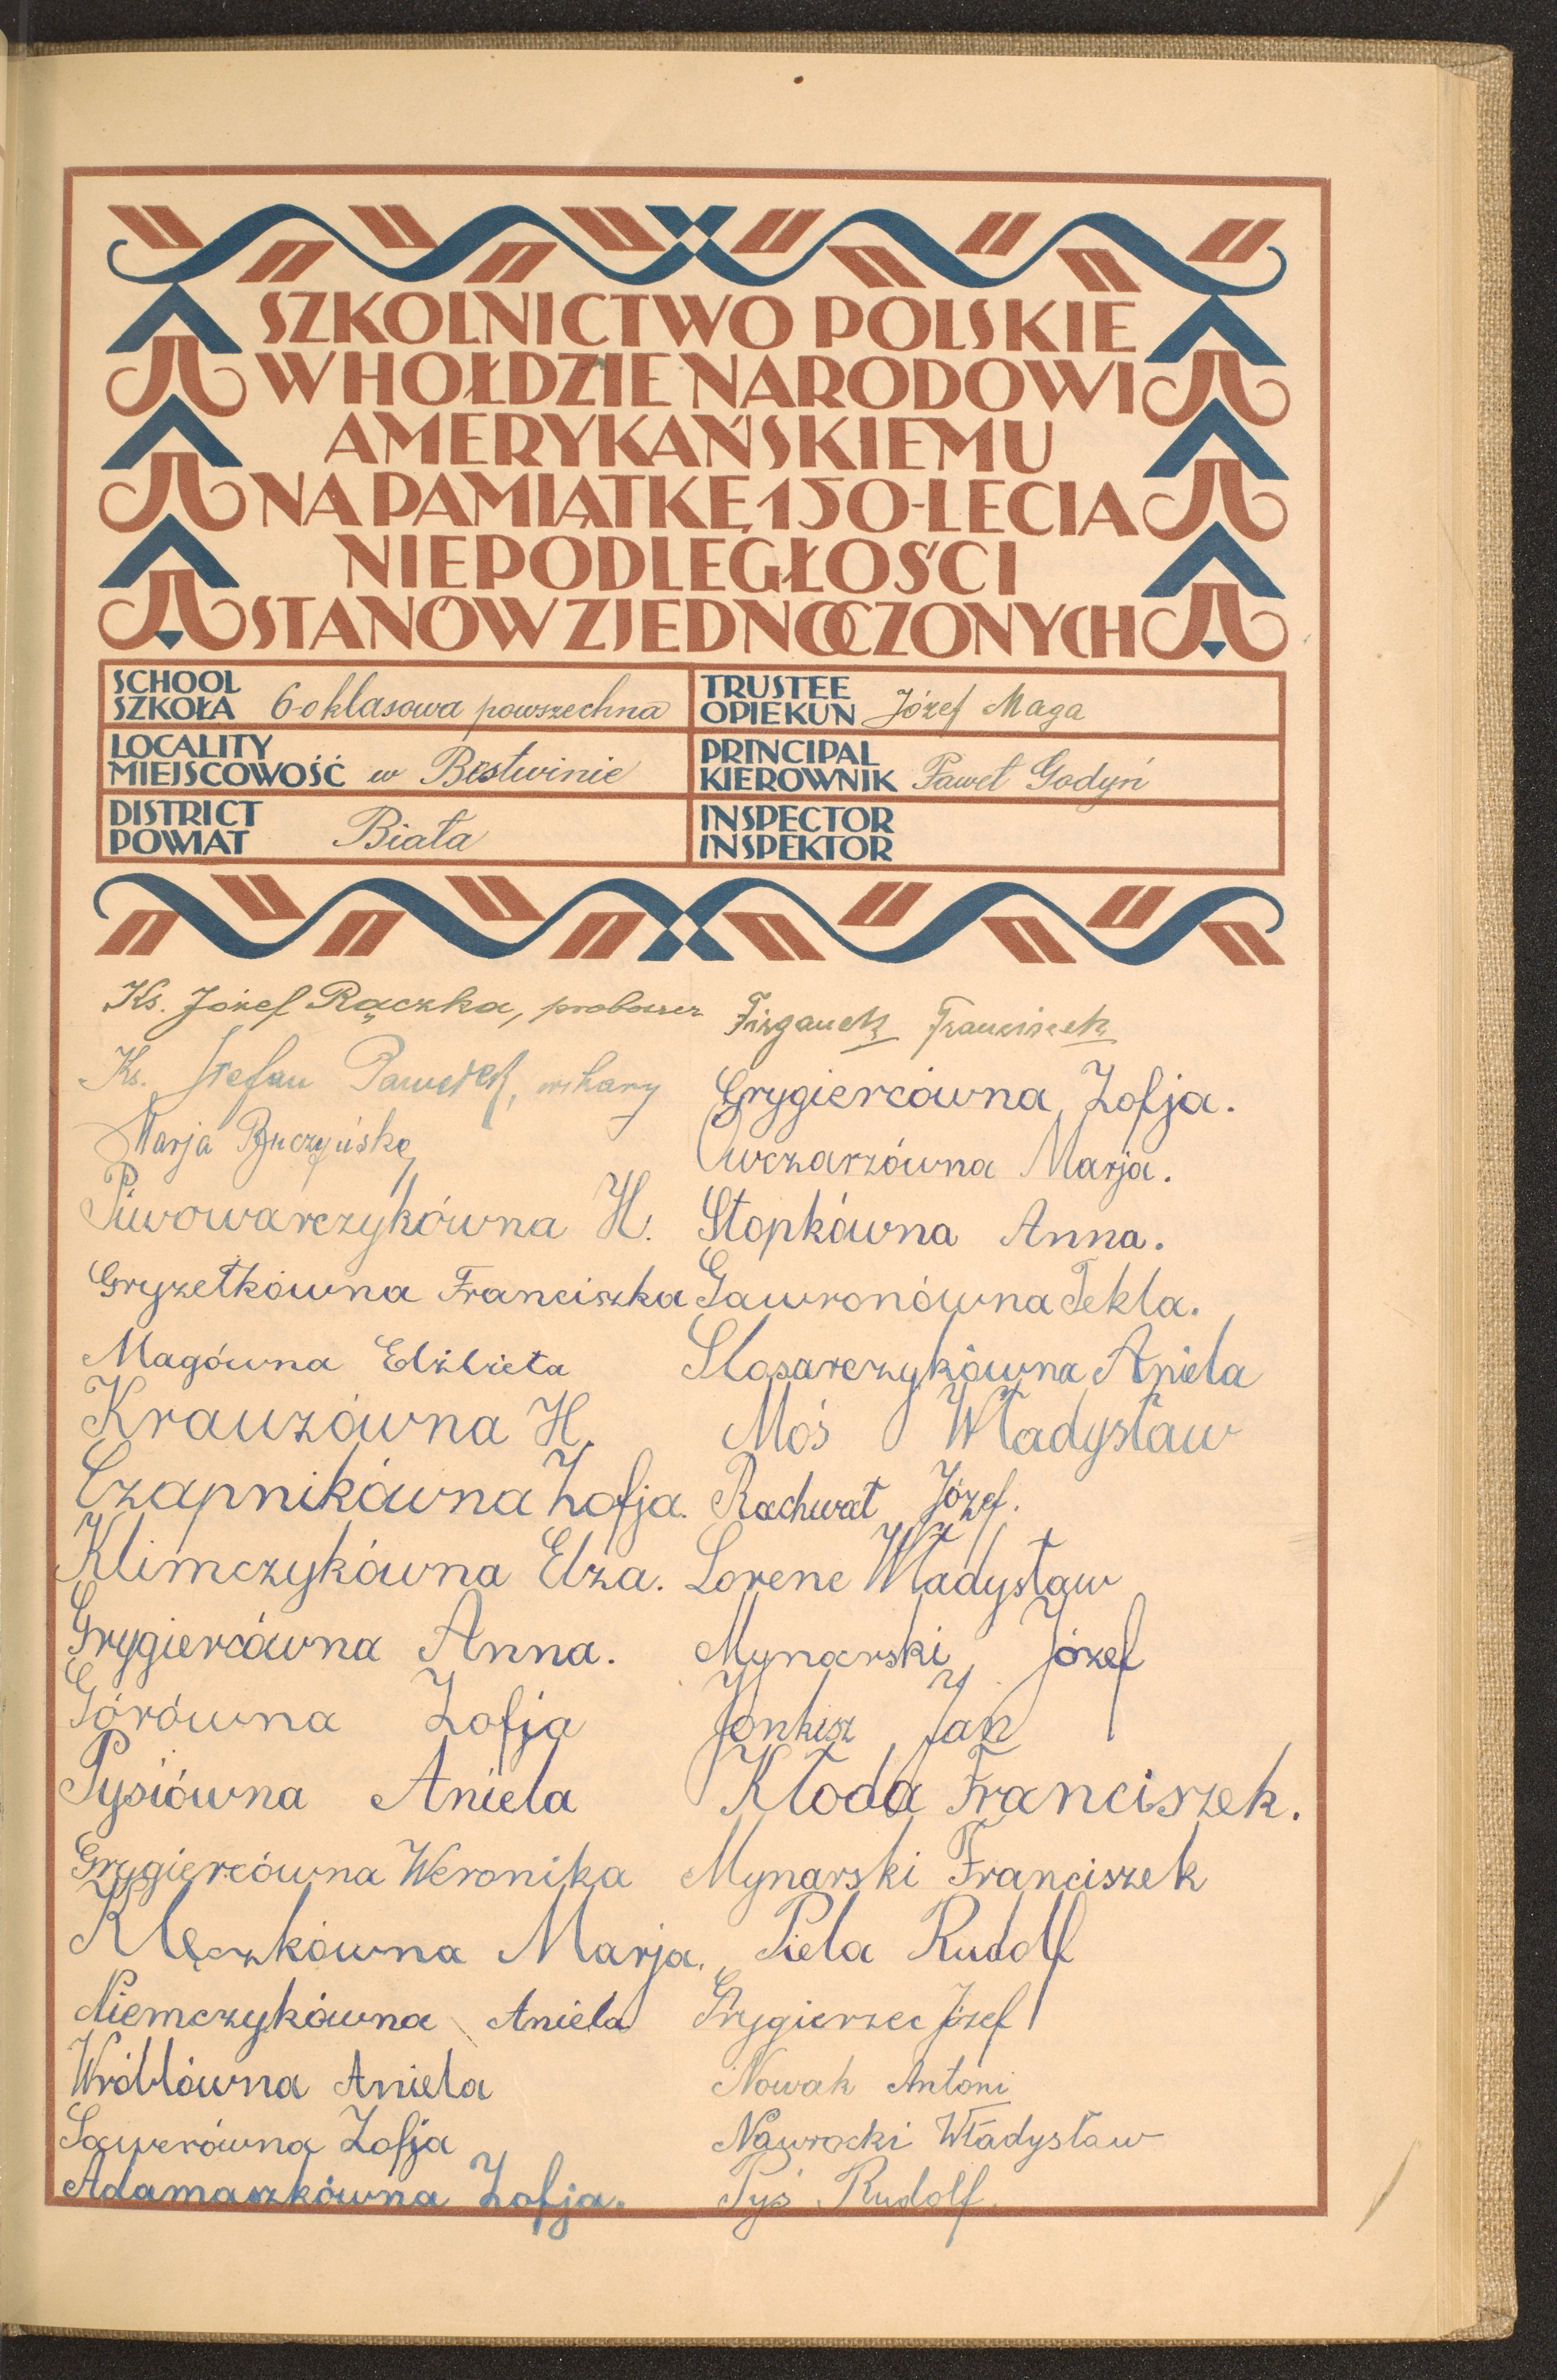 SZKOLNICTWO POLSKIE
W HOŁDZIE NARODOWI
AMERYKAŃSKIEMU
NA PAMIĄTKĘ 150-LECIA
NIEPODLEGŁOŚCI
STANÓW ZJEDNOCZONYCH
SCHOOL
SZKOŁA 6-o klasowa powszechna
TRUSTEE
OPIEKUN Józef Maga
LOCALITY
MIEJSCOWOŚĆ w Bestwinie
PRINCIPAL
KIEROWNIK Paweł Godyń
DISTRICT
POWIAT Biała
INSPECTOR
INSPEKTOR
Ks. Józef Rączka, proboszcz
Ks. Stefan wikary
Marja
Piwowarczykówna H.
Gryzełkówna Franciszka
Magówna Elżbieta
Krauzówna H.
Czapnikówna Zofja.
Klimczykówna Elza.
Grygiercówna Anna.
Górówna Zofja
Pysiówna Aniela
Grygiercówna Weronika
Klęczkówna Marja.
Niemczykówna Aniela
Wróblówna Aniela
Zofja
Adamaszkówna Zofja.
Franciszek
Grygiercówna Zofja.
Owczarzówna Marja.
Stopkówna Anna.
Gawronówna Tekla.
Slosarczykówna Aniela
Moś Władysław
Rachwał Józef.
Lorenc Władysław
Mynarski Józef
Jonkisz Jan
Kłoda Franciszek.
Mynarski Franciszek
Piela Rudolf
Grygierzec Józef
Nowak Antoni
Nawrocki Władysław
Pyś Rudolf.